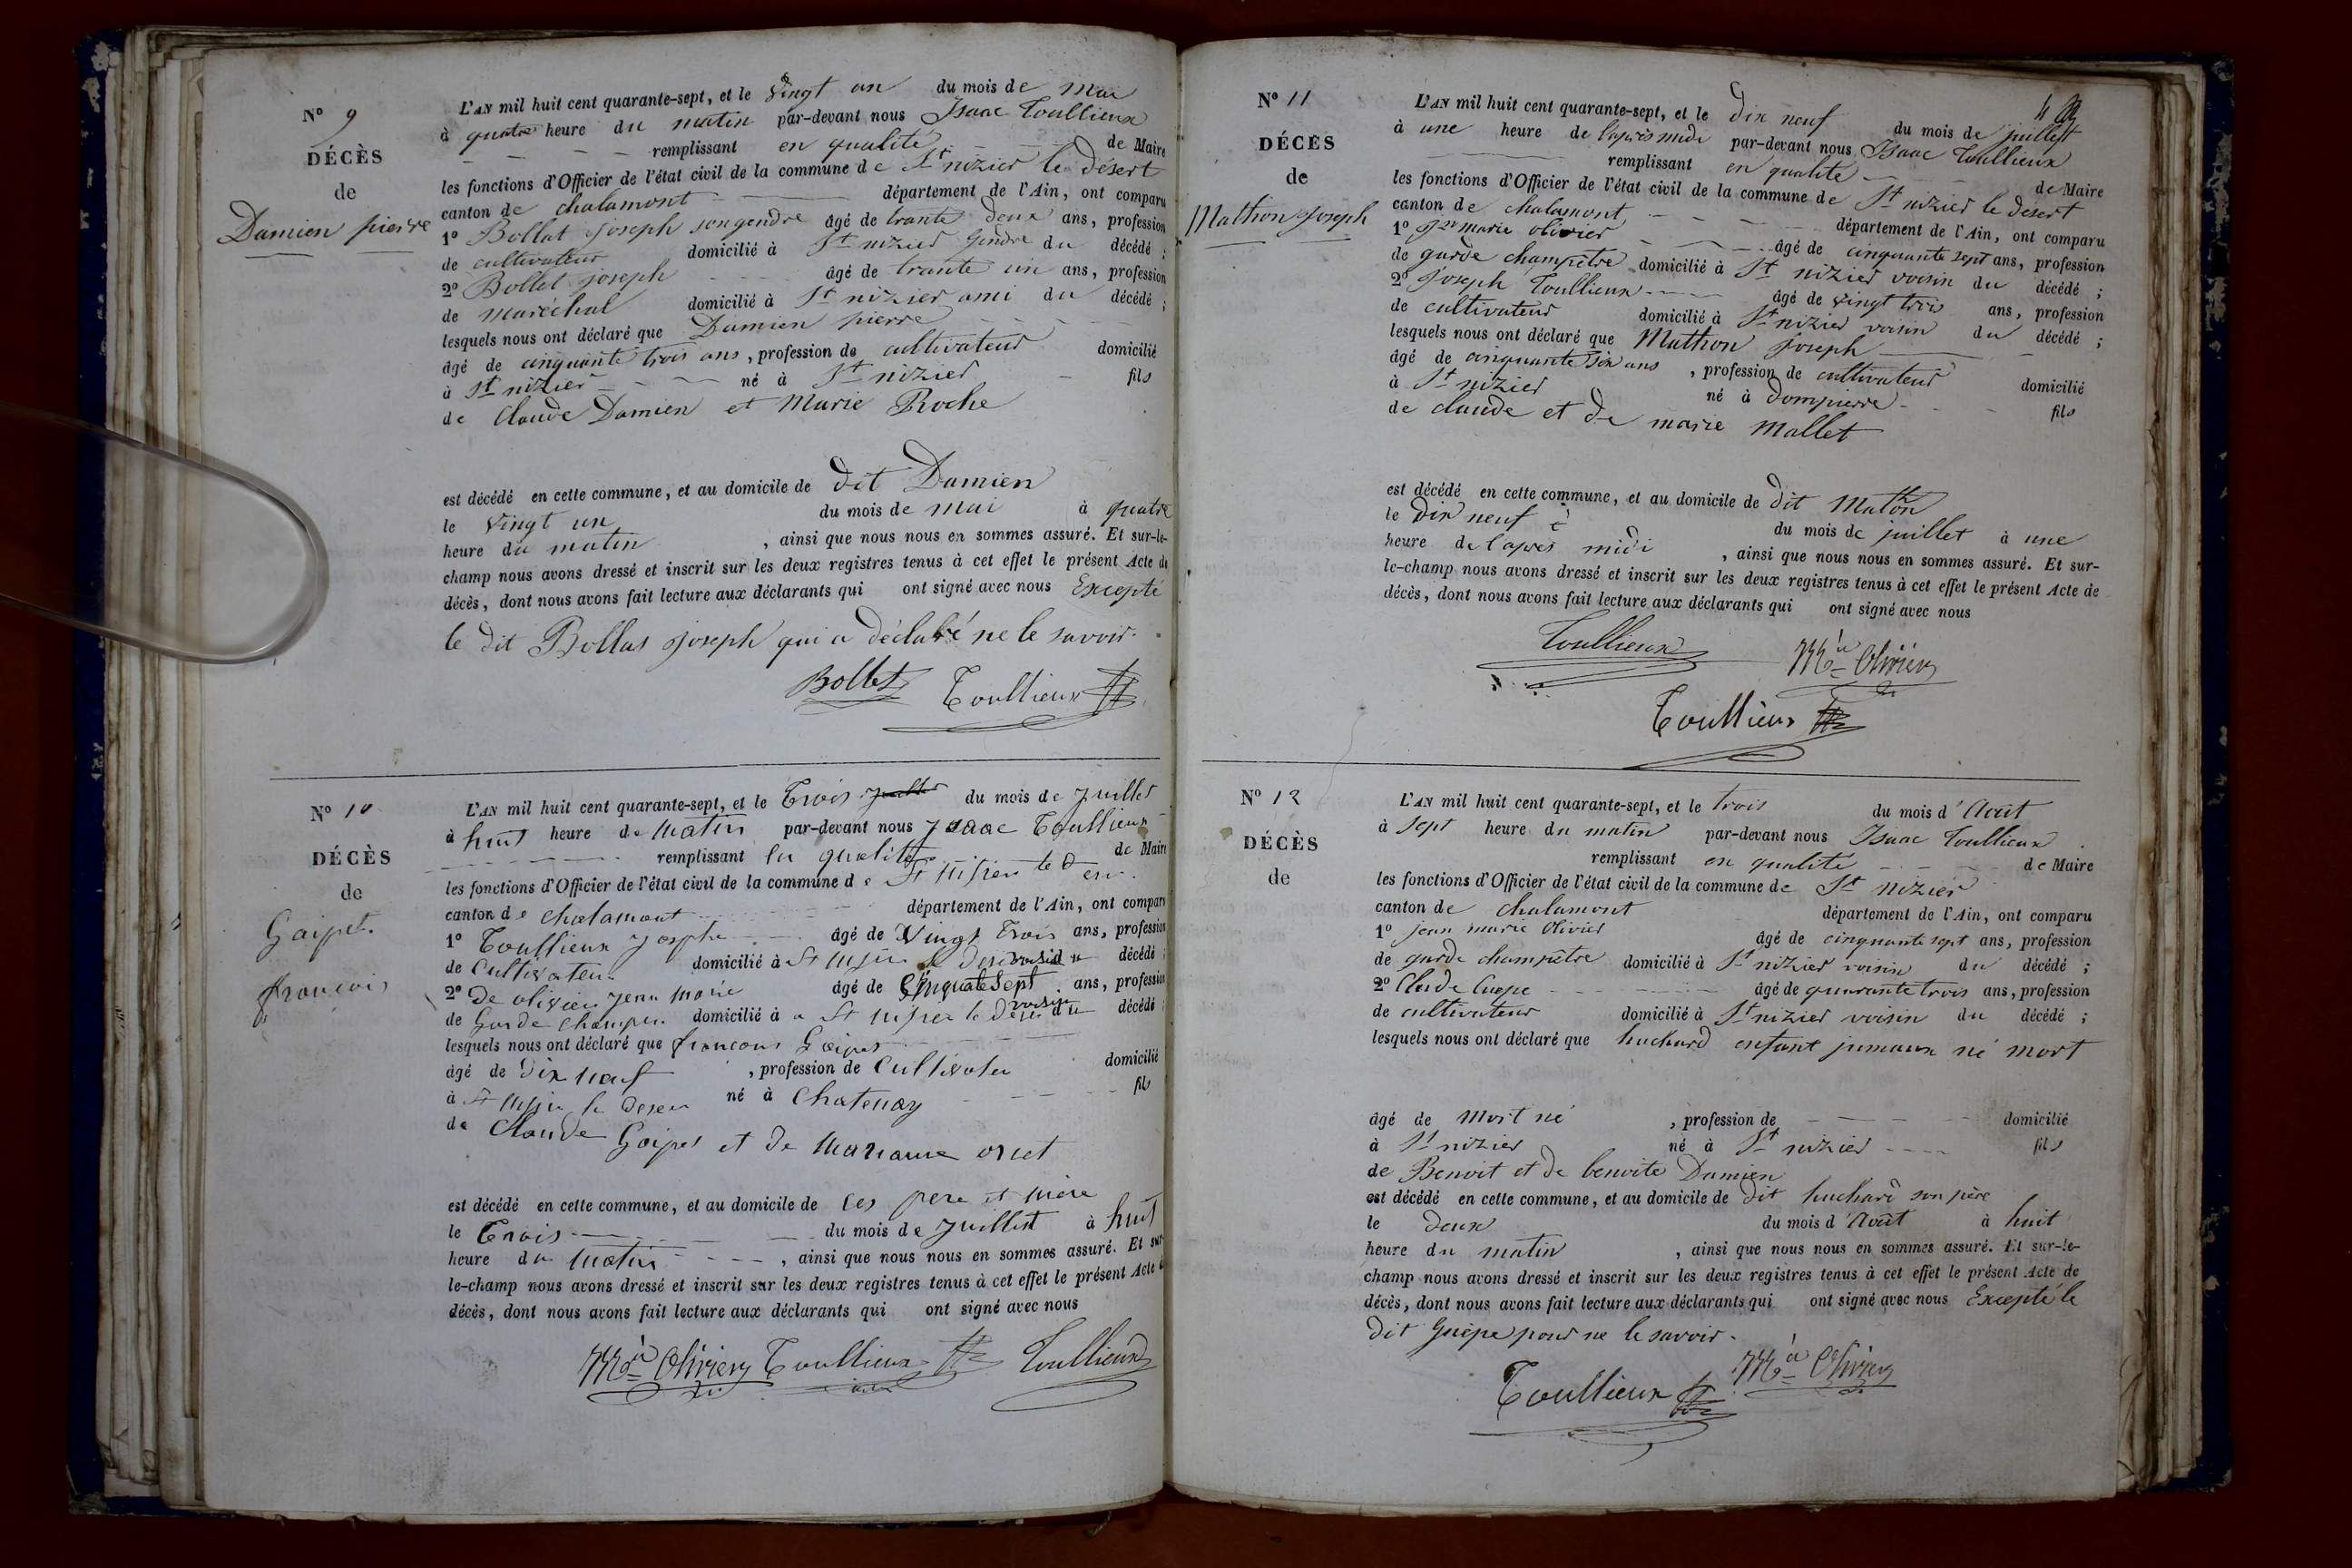 N° 9
DÉCÈS
de
Damien pierre
L'AN mil huit cent quarante-sept, et le vingt un du mois de Mai
à quatre heure du matin par-devant nous Isaac Toullieux
remplissant en qualité de Maire
les fonctions d'Officier de l'état civil de la commune de St nizier le désert
canton de chalamont département de l'Ain, ont comparu
1° Bollat joseph son gendre âgé de trante deux ans, profession
de cultivateur domicilié à St nizier Gendre du décédé ;
2° Bollet joseph âgé de trante un ans, profession
de Maréchal domicilié à St nizier ami du décédé ;
lesquels nous ont déclaré que Damien pierre
âgé de cinquante trois ans, profession de cultivateur domicilié
à St nizier né à St nizier fils
de Claude Damien et Marie Roche
est décédé en cette commune, et au domicile de dit Damien
le vingt un du mois de mai à quatre
heure du matin , ainsi que nous nous en sommes assuré. Et sur-le-
champ nous avons dressé et inscrit sur les deux registres tenus à cet effet le présent Acte de
décès, dont nous avons fait lecture aux déclarants qui ont signé avec nous Excepté
le dit Bollas joseph qui a déclaré ne le savoir.
Bollet Toullieux
N° 10
DÉCÈS
de
Gaipet
françois
L'AN mil huit cent quarante-sept, et le Trois juillet du mois de Juillet
à huit heure de Matin par-devant nous Isaac Toullieux
remplissant en qualité de Maire
les fonctions d'Officier de l'état civil de la commune de St nisier le
canton de chalamont département de l'Ain, ont comparu
1° Toullieux Josephe âgé de Vingt Trois ans, profession
de Cultivateur domicilié à St nisier le voisin du décédé ;
2° De olivier Jean Marie âgé de Cinquate Sept ans, profession
de Garde Champer domicilié à a St nisier le voisin du décédé ;
lesquels nous ont déclaré que francois Gaipet
âgé de Dix neuf , profession de Cultivater domicilié
à St nisier le Deser né à Chatenay fils
de Claude Gaipet et de Marianne oriet
est décédé en cette commune, et au domicile de Ces pere et Mère
le Trois du mois de Juillet à huit
heure du Matin , ainsi que nous nous en sommes assuré. Et sur-
le-champ nous avons dressé et inscrit sur les deux registres tenus à cet effet le présent Acte
décès, dont nous avons fait lecture aux déclarants qui ont signé avec nous
Mia Olivier Toullieux Toullieux
N° 11
DÉCÈS
de
Mathon Joseph
L'AN mil huit cent quarante-sept, et le Dix neuf du mois de juillet
à une heure de l'après midi par-devant nous Isaac Toullieux
remplissant en qualité de Maire
les fonctions d'Officier de l'état civil de la commune de St nizier le désert
canton de chalamont département de l'Ain, ont comparu
1° Jn marie olivier âgé de cinquante sept ans, profession
de garde champêtre domicilié à St nizier voisin du décédé ;
2° Joseph Toullieux âgé de vingt trois ans, profession
de cultivateur domicilié à St nizier voisin du décédé ;
lesquels nous ont déclaré que Mathon Joseph
âgé de cinquante six ans , profession de cultivateur domicilié
à St nizier né à Dompierre fils
de claude et de marie Mallet
est décédé en cette commune, et au domicile de dit Mathon
le Dix neuf du mois de juillet à une
heure de l'après midi , ainsi que nous nous en sommes assuré. Et sur-
le-champ nous avons dressé et inscrit sur les deux registres tenus à cet effet le présent Acte de
décès, dont nous avons fait lecture aux déclarants qui ont signé avec nous
Toullieux Mia Olivier
Toullieux
N° 12
DÉCÈS
de
L'AN mil huit cent quarante-sept, et le trois du mois d'Août
à sept heure du matin par-devant nous Isaac Toullieux
remplissant en qualité de Maire
les fonctions d'Officier de l'état civil de la commune de St Nizier
canton de chalamont département de l'Ain, ont comparu
1° jean marie Olivier âgé de cinquante sept ans, profession
de garde champêtre domicilié à St nizier voisin du décédé ;
2° Claude Guepe âgé de quarante trois ans, profession
de cultivateur domicilié à St nizier voisin du décédé ;
lesquels nous ont déclaré que huchard enfant jumaux né mort
âgé de mort né , profession de domicilié
à St nizier né à St nizier fils
de Benoit et de benoite Damien
est décédé en cette commune, et au domicile de dit huchard son père
le deux du mois d'Août à huit
heure du matin , ainsi que nous nous en sommes assuré. Et sur-le-
champ nous avons dressé et inscrit sur les deux registres tenus à cet effet le présent Acte de
décès, dont nous avons fait lecture aux déclarants qui ont signé avec nous Excepté le
dit Guèpe pour ne le savoir.
Toullieux Mia Olivier